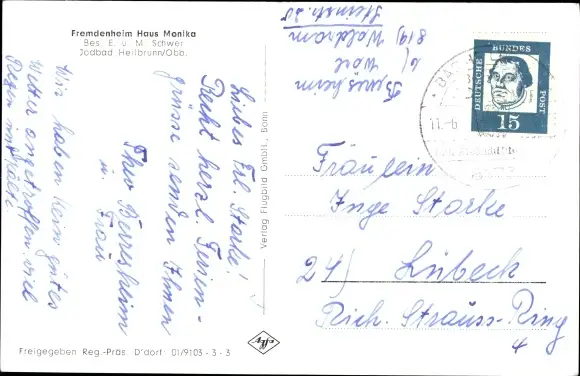 Fremdenheim Haus Monika
Bes. E. u. M. Schwer
Jodbad Heilbrunn/Obb.
Wir haben kein gutes
Wetter angetroffen. viel
Regen und
Liebes Frl. Starke!
Recht herzl. Ferien-
grüsse senden Ihnen
Theo Berresheim
u. Frau
Verlag Flugbild GmbH., Bonn
Berresheim
b/
819) Waldram
Steinstr. 20
DEUTSCHE BUNDES POST
15
11.-6
Fräulein
Inge Starke
24) Lübeck
Rich. Strauss-Ring
4
Freigegeben Reg.-Präs. D'dorf: 01/9103 - 3 - 3